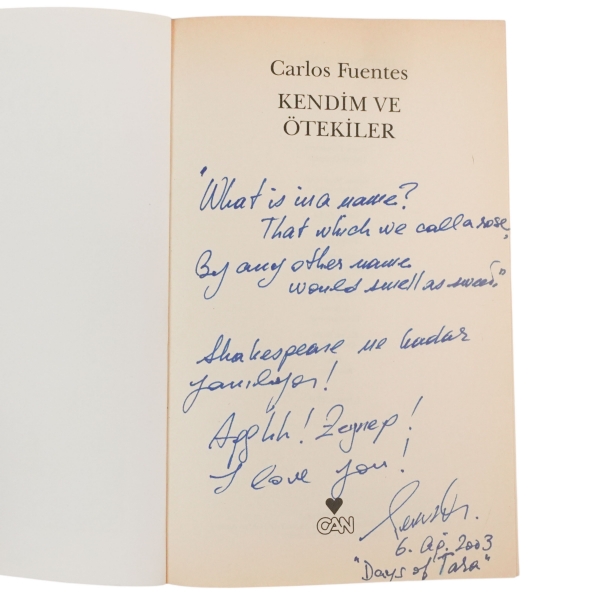 Carlos Fuentes
KENDİM VE
ÖTEKİLER
"What is in a name?
That which we call a rose,
By any other name
would smell as sweet."
Shakespeare ne kadar
yanılıyor!
Agghh! Zeynep!
I love you!
CAN
6. Ağ. 2003
"Days of Tara"